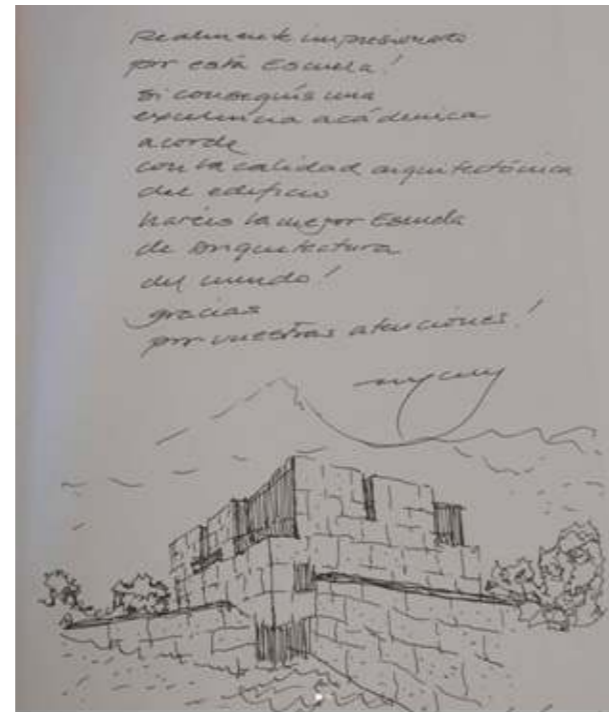 Realmente impresionado
por esta Escuela!
Si conseguís una
excelencia académica
acorde
con la calidad arquitectónica
del edificio
haréis la mejor Escuela
de Arquitectura
del mundo!
gracias
por vuestras atenciones!